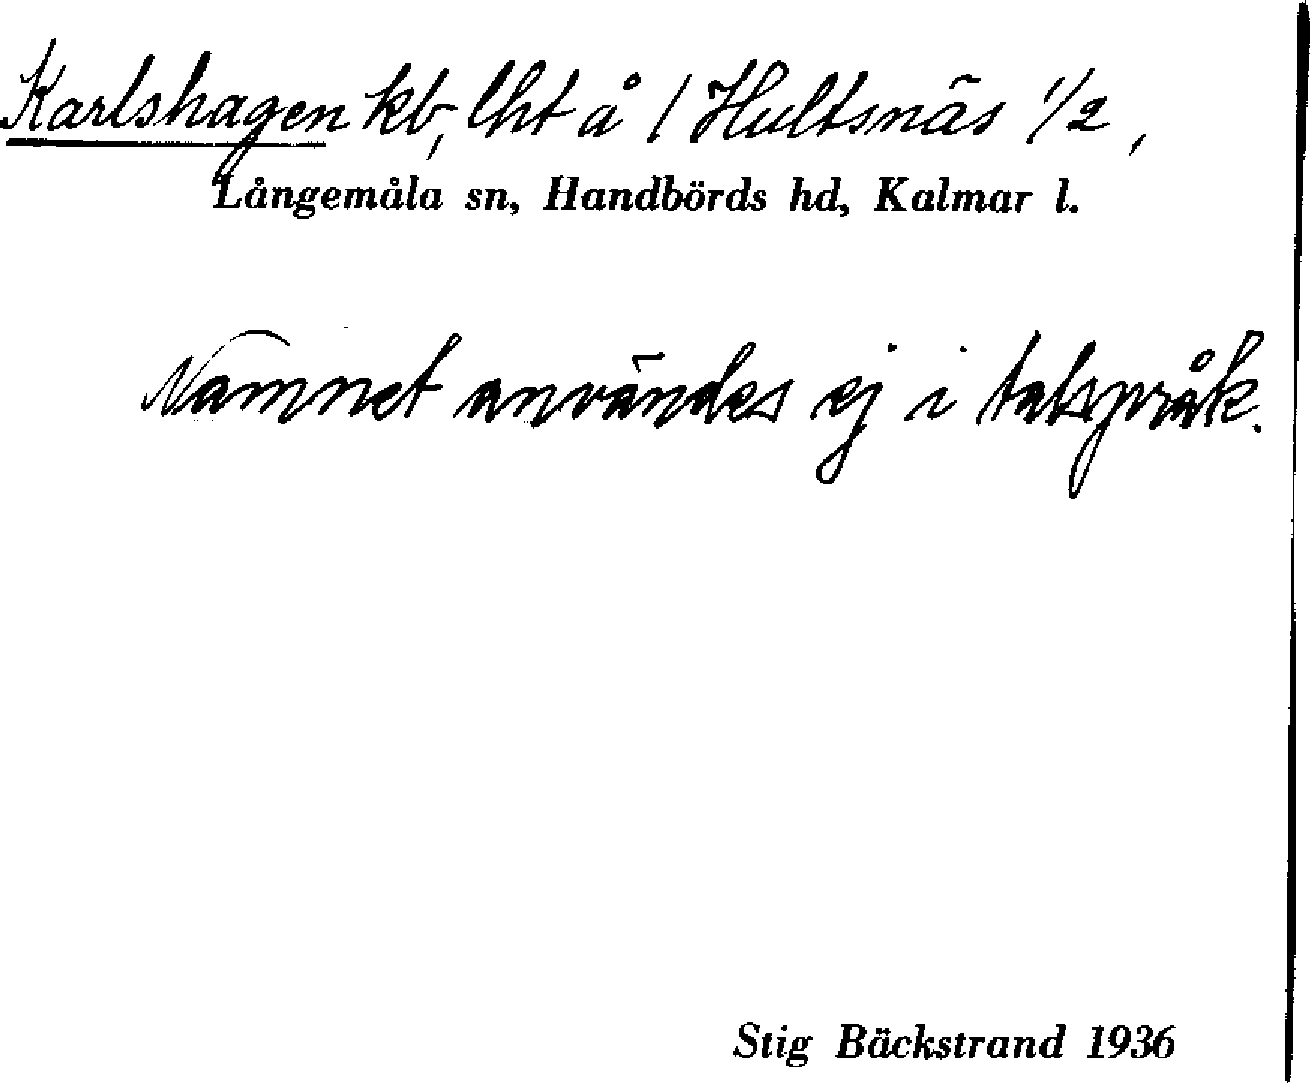 Karlshagen kb, lht å / Hultsnäs 1/2,
Långemåla sn, Handbörds hd, Kalmar l.
Namnet användes ej i talspråk.
Stig Bäckstrand 1936